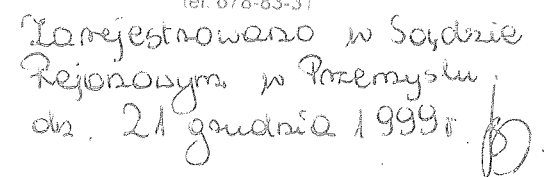 tel. 678-83-31
Zarejestrowano w Sądzie
Rejonowym w Przemyślu.
dn. 21 grudnia 1999r.